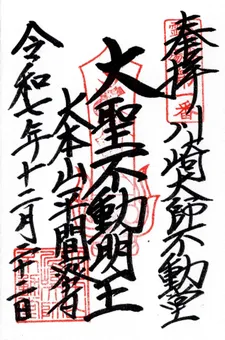 奉拝
川崎大師不動堂
大聖不動明王
大本山平間寺
令和七年十二月二十二日